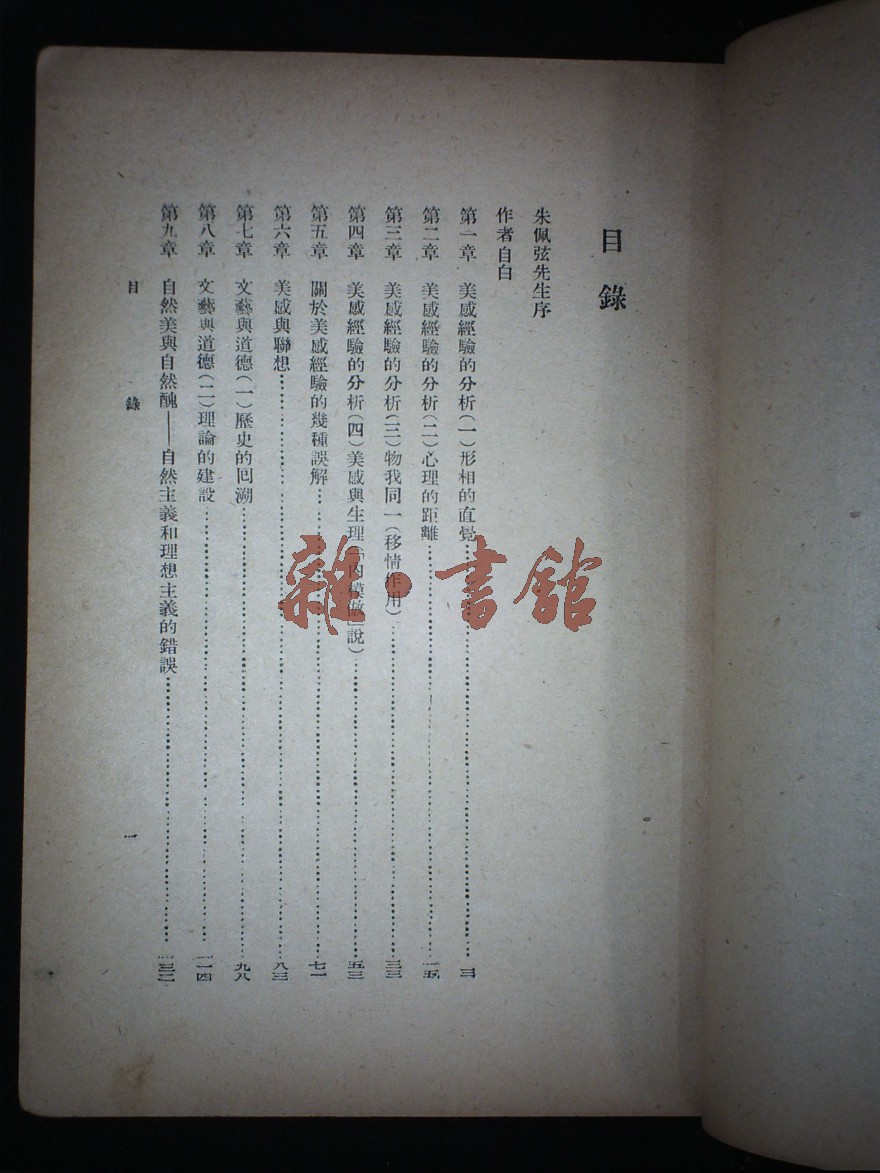 目錄
朱佩弦先生序
作者自白
第一章 美感經驗的分析(一)形相的直覺……三
第二章 美感經驗的分析(二)心理的距離……一五
第三章 美感經驗的分析(三)物我同一(移情作用)……三三
第四章 美感經驗的分析(四)美感與生理(「內模倣」說)……五三
第五章 關於美感經驗的幾種誤解……七一
第六章 美感與聯想……八三
第七章 文藝與道德(一)歷史的回溯……九八
第八章 文藝與道德(二)理論的建設……一一四
第九章 自然美與自然醜——自然主義和理想主義的錯誤……
目錄 一
雜·書館